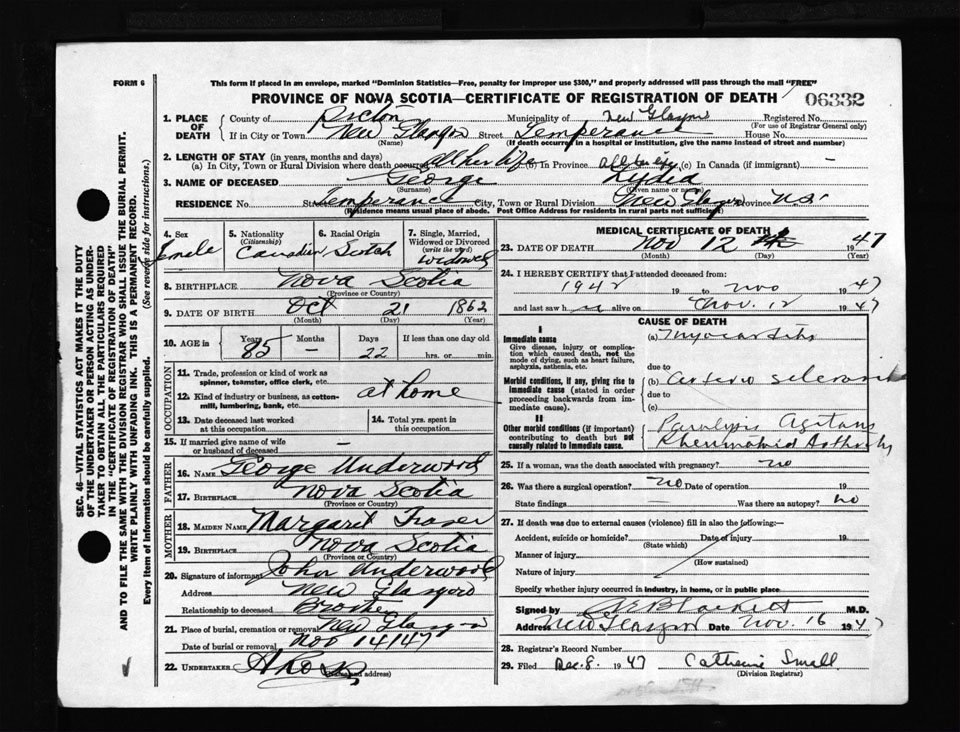 FORM 6
This form if placed in an envelope, marked "Dominion Statistics—Free, penalty for improper use $300," and properly addressed will pass through the mail "FREE"
PROVINCE OF NOVA SCOTIA—CERTIFICATE OF REGISTRATION OF DEATH 06332
1. PLACE OF DEATH County of Pictou Municipality of New Glasgow Registered No.
(For use of Registrar General only)
If in City or Town New Glasgow Street Temperance House No.
(Name) (If death occurred in a hospital or institution, give the name instead of street and number)
2. LENGTH OF STAY (in years, months and days)
(a) In City, Town or Rural Division where death occurred all her life (b) In Province all her life (c) In Canada (if immigrant) -
3. NAME OF DECEASED George Lydia
(Surname) (Given name or names)
RESIDENCE No. Street Temperance City, Town or Rural Division New Glasgow Province N.S.
(Residence means usual place of abode. Post Office Address for residents in rural parts not sufficient)
4. Sex Female
5. Nationality (Citizenship) Canadian
6. Racial Origin Scotch
7. Single, Married, Widowed or Divorced (write the word) Widowed
8. BIRTHPLACE Nova Scotia
(Province or Country)
9. DATE OF BIRTH Oct 21 1862
(Month) (Day) (Year)
10. AGE in Years 85 Months - Days 22 If less than one day old hrs. or min.
OCCUPATION
11. Trade, profession or kind of work as spinner, teamster, office clerk, etc.
12. Kind of industry or business, as cotton-mill, lumbering, bank, etc. at home
13. Date deceased last worked at this occupation
14. Total yrs. spent in this occupation
15. If married give name of wife or husband of deceased -
FATHER
16. NAME George Underwood
17. BIRTHPLACE Nova Scotia
(Province or Country)
MOTHER
18. MAIDEN NAME Margaret Fraser
19. BIRTHPLACE Nova Scotia
(Province or Country)
20. Signature of informant John Underwood
Address New Glasgow
Relationship to deceased Brother
21. Place of burial, cremation or removal New Glasgow
Date of burial or removal Nov 14/47
22. UNDERTAKER
(Name and address)
MEDICAL CERTIFICATE OF DEATH
23. DATE OF DEATH Nov 12 1947
(Month) (Day) (Year)
24. I HEREBY CERTIFY that I attended deceased from:
1942 19 to Nov 1947
and last saw h alive on Nov. 12 1947
CAUSE OF DEATH
I
Immediate cause (a) Myocarditis
Give disease, injury or complication which caused death, not the mode of dying, such as heart failure, asphyxia, asthenia, etc.
due to
Morbid conditions, if any, giving rise to immediate cause (stated in order proceeding backwards from immediate cause).
(b) arterio sclerosis
due to
(c)
II
Other morbid conditions (if important) contributing to death but not causally related to immediate cause.
Paralysis Agitans
Rheumatoid Arthritis
25. If a woman, was the death associated with pregnancy? no
26. Was there a surgical operation? no Date of operation 19
State findings Was there an autopsy? no
27. If death was due to external causes (violence) fill in also the following:—
Accident, suicide or homicide? Date of injury 19
(State which)
Manner of injury
(How sustained)
Nature of injury
Specify whether injury occurred in industry, in home, or in public place
Signed by M.D.
Address New Glasgow Date Nov. 16 1947
28. Registrar's Record Number
29. Filed Dec. 8. 1947 Catherine Small
(Division Registrar)
SEC. 46—VITAL STATISTICS ACT MAKES IT THE DUTY
OF THE UNDERTAKER OR PERSON ACTING AS UNDER-
TAKER TO OBTAIN ALL THE PARTICULARS REQUIRED
IN THE "CERTIFICATE OF REGISTRATION OF DEATH"
AND TO FILE THE SAME WITH THE DIVISION REGISTRAR WHO SHALL ISSUE THE BURIAL PERMIT.
WRITE PLAINLY WITH UNFADING INK. THIS IS A PERMANENT RECORD.
Every item of Information should be carefully supplied. (See reverse side for instructions.)